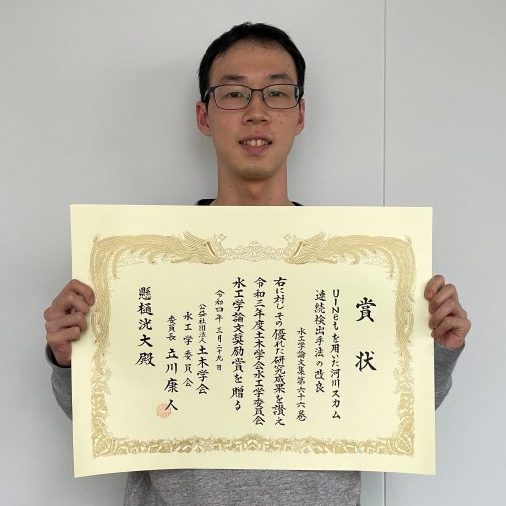 賞状
U-Netを用いた河川スカム
連続検出手法の改良
水工学論文集第六十六巻
右に対しその優れた研究成果を讃え
令和三年度土木学会水工学委員会
水工学論文奨励賞を贈る
令和四年 三月二十九日
公益社団法人 土木学会
水工学委員会
委員長 立川康人
懸樋洸大殿